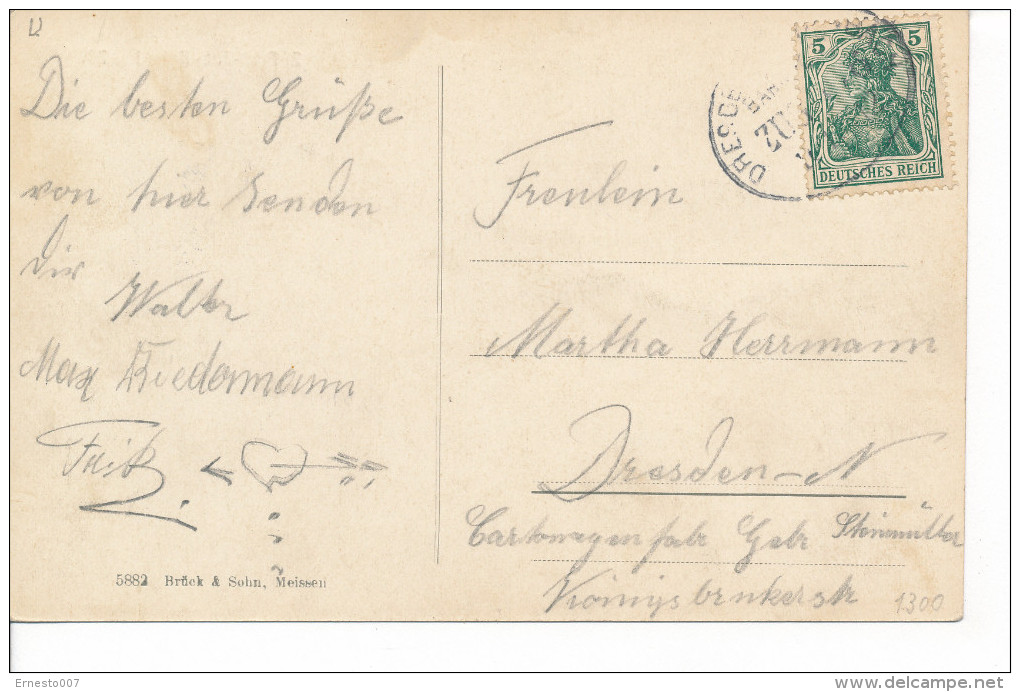 Die besten Grüße
von hier senden
Dir
Walter
Max Riedermann
Fritz
5882 Brück & Sohn, Meissen
5 5
DEUTSCHES REICH
DRESDE
ZU
Freulein
Martha Herrmann
Dresden-N
Cartonagenfabr Gebr Steinmüller
Königsbrukerstr
1300
Ernesto007
delcampe.net